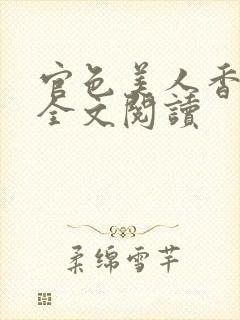 官色美人香
全文閱讀
柔绵雪芊